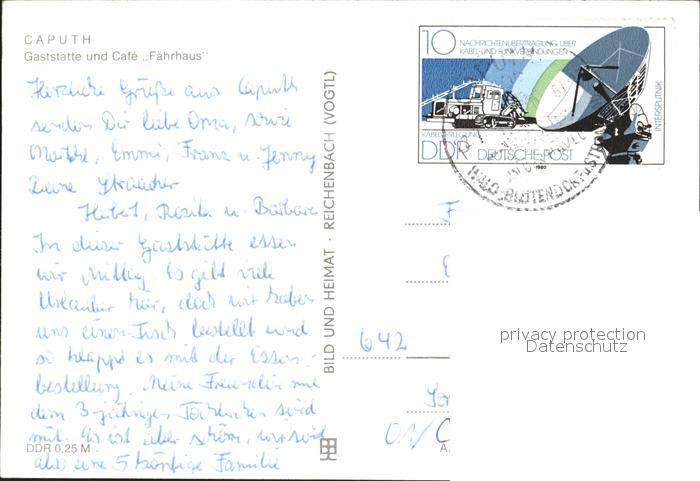 CAPUTH
Gaststätte und Café „Fährhaus"
Herzliche Grüße aus Caputh
senden Dir liebe Oma, sowie
Emmi, Franz u. Jenny
Deine
Hubert, Rosita u. Barbara
In dieser Gaststätte essen
wir Mittag. Es gibt viele
Urlauber hier, doch wir haben
uns einen Tisch bestellt und
so klappt es mit der Essen-
bestellung. Meine Freundin mit
dem 3-jährigen Töchterchen sind
mit. Es ist aber schön, wir sind
also eine 5 köpfige Familie
DDR 0,25 M
BILD UND HEIMAT · REICHENBACH (VOGTL)
10 NACHRICHTENÜBERTRAGUNG ÜBER
KABEL- UND FUNKVERBINDUNGEN
INTERSPUTNIK
KABELVERLEGUNG
DDR DEUTSCHE POST
1980
F
642
01/
A
privacy protection
Datenschutz